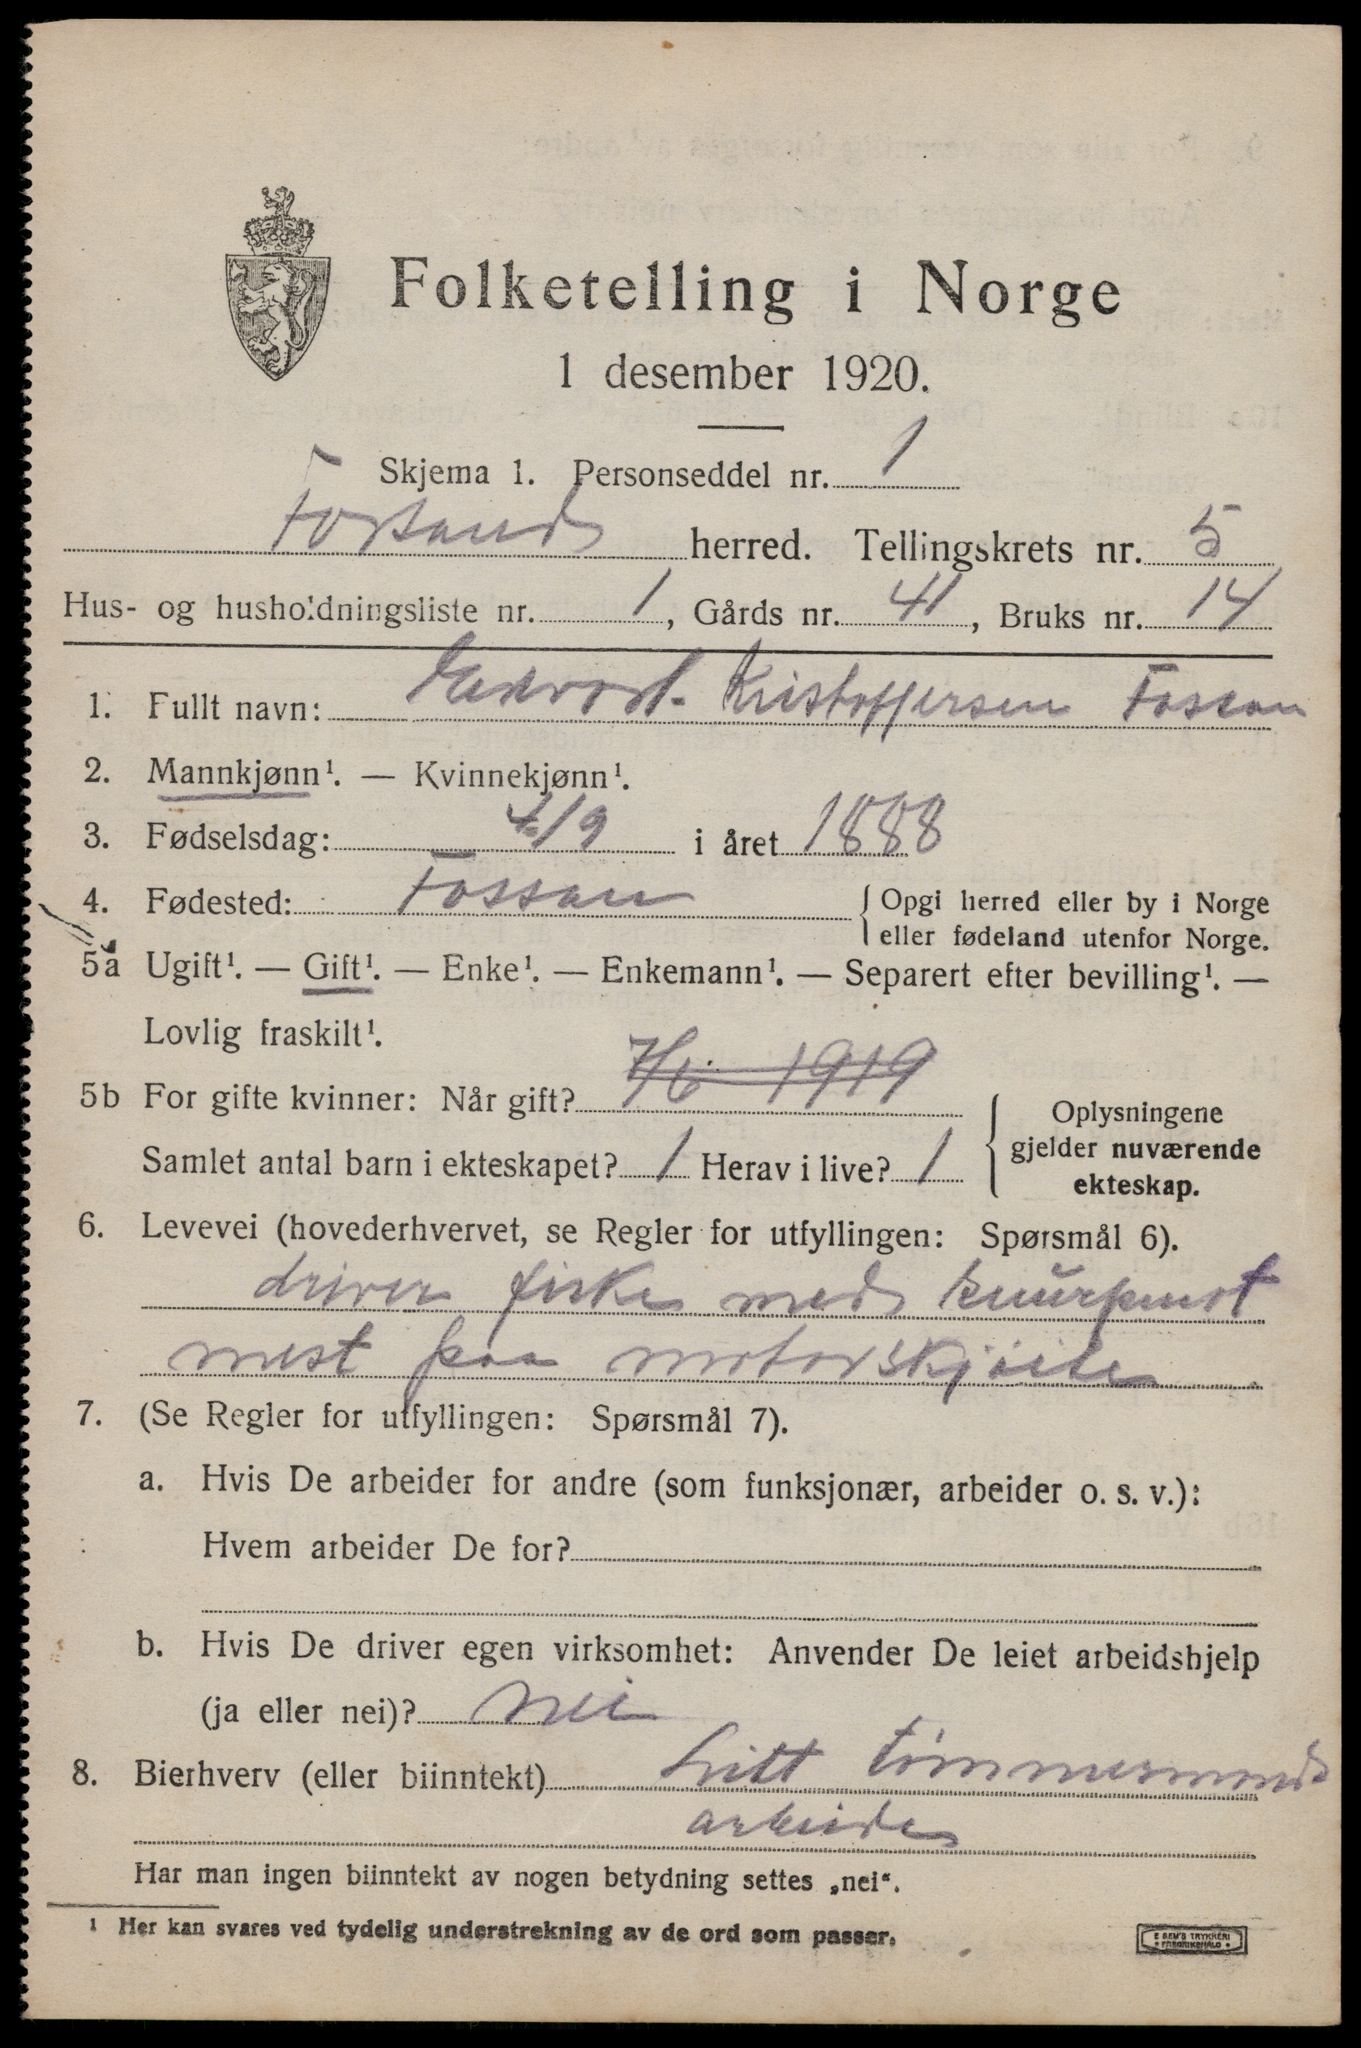 Folketelling i Norge
1 desember 1920.
Skjema 1. Personseddel nr. 1
Fossand herred. Tellingskrets nr. 5
Hus- og husholdningsliste nr. 1, Gårds nr. 41, Bruks nr. 14
1. Fullt navn: Edvard Kristoffersen Fossan
2. Mannkjønn¹. — Kvinnekjønn¹.
3. Fødselsdag: 4/9 i året 1888
4. Fødested: Fossan { Opgi herred eller by i Norge
eller fødeland utenfor Norge.
5a Ugift¹. — Gift¹. — Enke¹. — Enkemann¹. — Separert efter bevilling¹. —
Lovlig fraskilt¹.
5b For gifte kvinner: Når gift? 7/6 1919
Samlet antal barn i ekteskapet? 1 Herav i live? 1
{ Oplysningene
gjelder nuværende
ekteskap.
6. Levevei (hovederhvervet, se Regler for utfyllingen: Spørsmål 6).
driver fiske med
mest paa motorskjøite
7. (Se Regler for utfyllingen: Spørsmål 7).
a. Hvis De arbeider for andre (som funksjonær, arbeider o. s. v.):
Hvem arbeider De for?
b. Hvis De driver egen virksomhet: Anvender De leiet arbeidshjelp
(ja eller nei)? nei
8. Bierhverv (eller biinntekt) Litt tømmermands
arbeide
Har man ingen biinntekt av nogen betydning settes „nei“.
¹ Her kan svares ved tydelig understrekning av de ord som passer.
E SEM'S TRYKKERI
FREDRIKSHALD